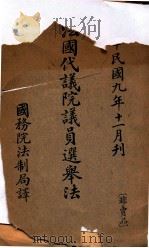 中民國九年十一月刊
法國代議院議員選舉法
國務院法制局譯
非賣品